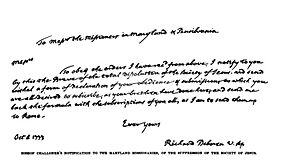 To Messrs the Missioners in Maryland & Pensilvania
Messrs
To obey the orders I have recd from above, I notify to you
by this the Breve of the total dissolution of the Society of Jesus, and send
withal a form of declaration of your obedience & submission to which you
are all obliged to subscribe, as your brethren have done here, and send me
back the formula with the subscriptions of you all, as I am to send them up
to Rome.
Ever yours
Oct 6 1773
Richard Deboren V. Ap.
BISHOP CHALLONER'S NOTIFICATION TO THE MARYLAND MISSIONARIES, OF THE SUPPRESSION OF THE SOCIETY OF JESUS.